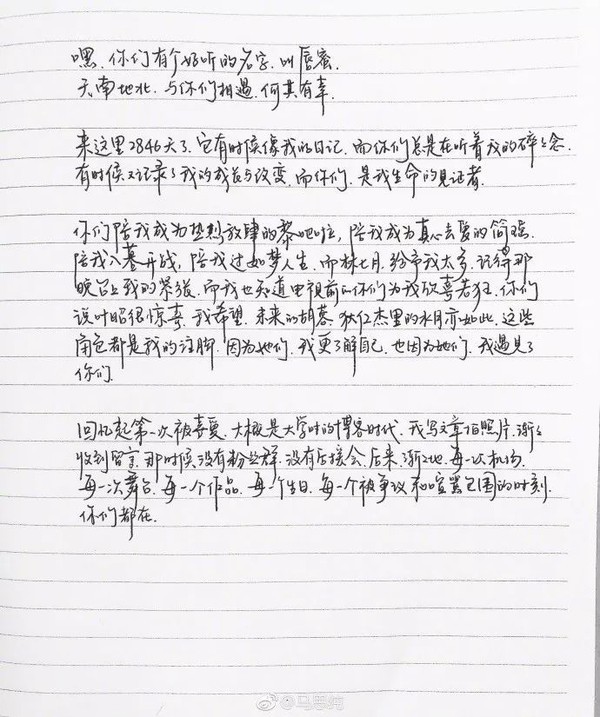 嘿,你们有个好听的名字,叫唇蜜.
天南地北,与你们相遇,何其有幸
来这里2846天了.它有时候像我的日记.而你们总是在听着我的碎碎念.
有时候又记录了我的成长与改变.而你们,是我生命的见证者.
你们陪我成为热烈放肆的黎吧啦,陪我成为真心去爱的简瑶.
陪我入墓开战,陪我过如梦人生.而林七月,给予我太多.记得那
晚台上我的紧张.而我也知道电视前的你们为我欣喜若狂.你们
说叶昭很惊喜.我希望.未来的胡蓉.狄仁杰里的水月亦如此.这些
角色都是我的注脚.因为她们.我更了解自己.也因为她们.我遇见了
你们.
回忆起第一次被喜爱.大概是大学时的博客时代.我写文章拍照片.渐渐
收到留言.那时候没有粉丝群.没有后援会.后来,渐渐地.每一次机场
每一次舞台.每一个作品.每个生日.每一个被争议和喧嚣包围的时刻.
你们都在.
@马思纯